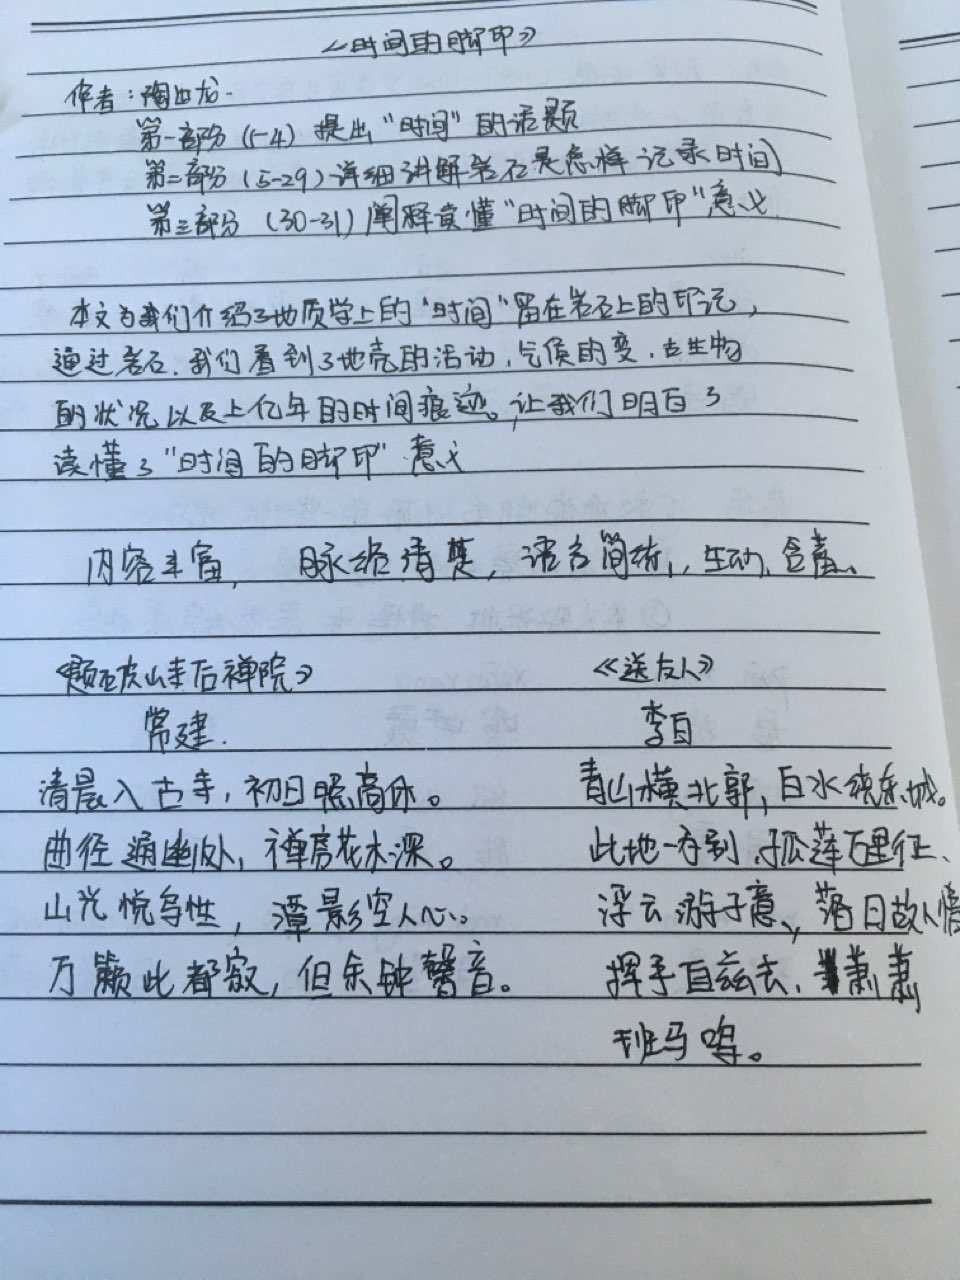 《时间的脚印》
作者：陶世龙.
第一部分（1-4）提出“时间”的话题
第二部分（5-29）详细讲解岩石是怎样记录时间
第三部分（30-31）阐释读懂“时间的脚印”意义
本文为我们介绍了地质学上的“时间”留在岩石上的印记，
通过岩石、我们看到了地壳的活动，气侯的变、古生物
的状况以及上亿年的时间痕迹。，让我们明白了
读懂了“时间的脚印”意义
内容丰富，脉络清楚，语言简练，生动、含蓄、
《题破山寺后禅院》 《送友人》
常建. 李白
清晨入古寺，初日照高休。 青山横北郭，白水绕东城。
曲径通幽处，禅房花木深。 此地一为别，孤莲万里征、
山光悦鸟性，潭影空人心。 浮云游子意、，落日故人情
万籁此都寂，但余钟磬音。 挥手自兹去、萧萧
班马鸣。